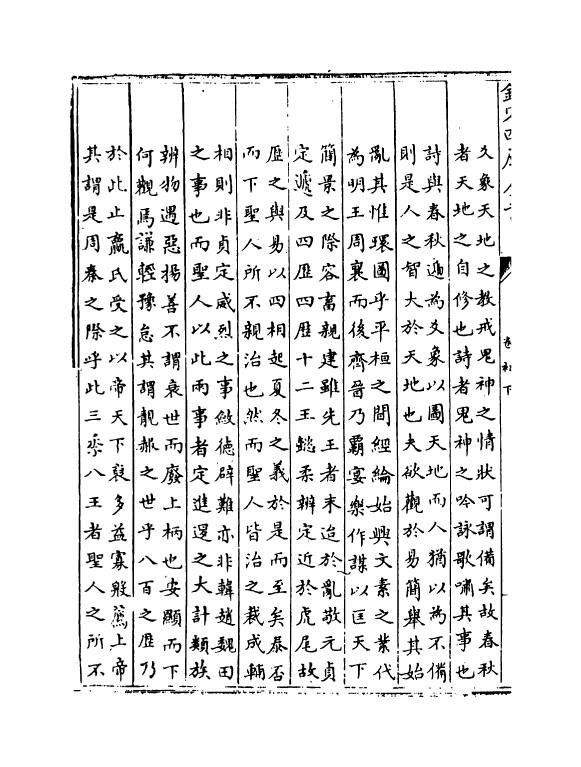 爻象天地之教戒鬼神之情狀可謂備矣故春秋
者天地之自修也詩者鬼神之吟詠歌嘯其事也
詩與春秋遞為爻象以圖天地而人猶以為不備
則是人之智大於天地也夫欲觀於易簡舉其始
亂其惟環圖乎平桓之間經綸始興文素之業代
為明王周襄而後齊晉乃霸宴樂作謀以匡天下
簡景之際容畜親建雖先王者未迨於亂敬元貞
定遞及四歷四歷十二王懿柔辨定近於虎尾故
歷之與易以四相起夏冬之義於是而至矣泰否
而下聖人所不親治也然而聖人皆治之裁成輔
相則非貞定威烈之事斂德辟難亦非韓趙魏田
之事也而聖人以此兩事者定進退之大計類族
辨物遏惡揚善不謂衰世而廢上柄也安顯而下
何觀焉謙輕豫怠其謂靚赧之世乎八百之歷乃
於此止嬴氏受之以帝天下裒多益寡殷薦上帝
其謂是周秦之際乎此三八王者聖人之所不